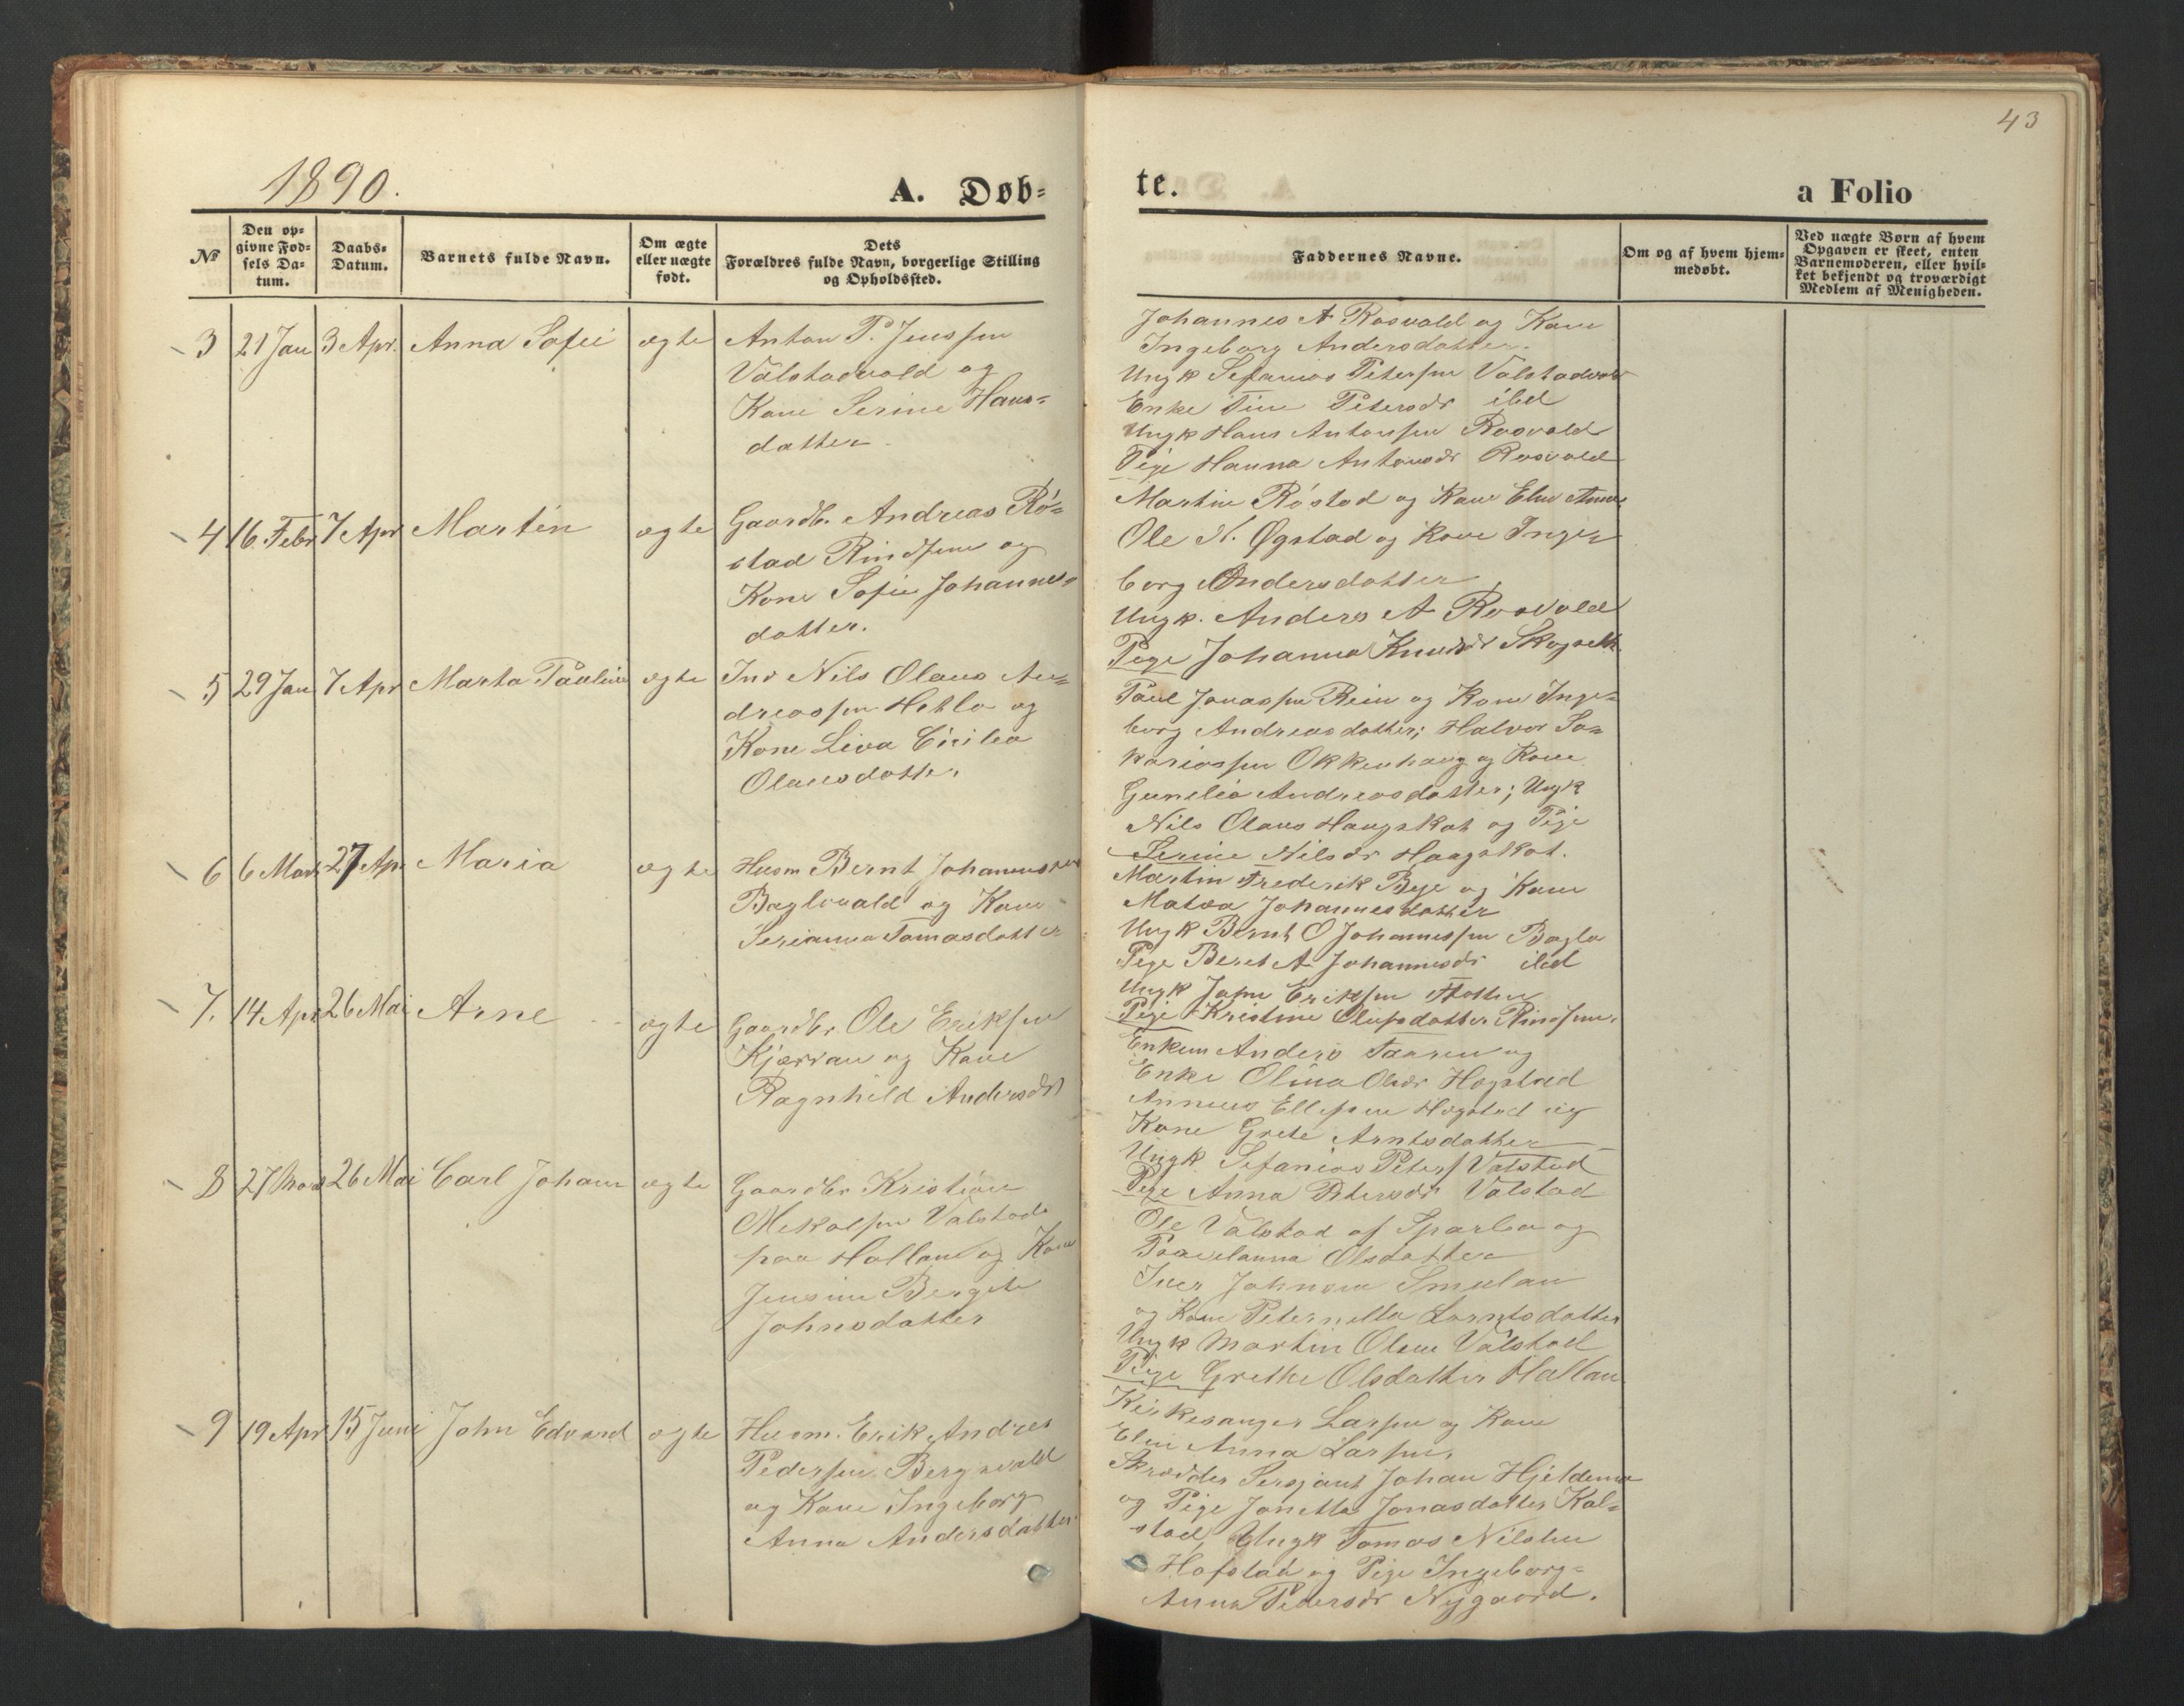 43
1890.
A. Døb-
te.
a Folio
No
Den op-
givne Fød-
sels Da-
tum.
Daabs-
Datum.
Barnets fulde Navn.
Om ægte
eller uægte
født.
Dets
Forældres fulde Navn, borgerlige Stilling
og Opholdssted.
Faddernes Navne.
Om og af hvem hjem-
medøbt.
Ved uægte Børn af hvem
Opgaven er skeet, enten
Barnemoderen, eller hvil-
ket bekjendt og troværdigt
Medlem af Menigheden.
3 21 Jan 3 Apr. Anna Sofie ægte Anton P. Jenssen
Valstadvald og
Kone Serine Hans-
datter
Johannes A Rosvold og Kone
Ingeborg Andersdatter.
Ungk Sefanias Petersen Valstadvald
Enke Petersdr ibd
Ungk Hans Antonsen Rosvold
Pige Hanna Antonsdr Rosvold
4 16 Febr 7 Apr Martin ægte Gaardbr. Andreas Rö-
stad Rindsem og
Kone Sofie Johannes-
datter.
Martin Röstad og Kone Elen Anna
Ole N. Øgstad og Kone Inge-
borg Andersdatter
Ungk. Anders A Rosvold
Pige Johanna
5 29 Jan 7 Apr Marta Pauline ægte Ind Nils Olaus An-
dreassen Hetlo og
Kone Liva
Olausdatter
Paul Jonassen Rein og Kone Inge-
borg Andreasdatter; Halvor Sa-
kariassen Okkenhaug og Kone
Gunelia Andreasdatter; Ungk
Nils Olaus Haugskot og Pige
Serine Nilsdr Haugskot.
6 6 Marts 27 Apr Maria ægte Husm Bernt Johannessen
Baglovald og Kone
Serianna Tomasdatter
Martin Frederik Bye og Kone
Johannesdatter
Ungk Bernt O Johannessen Baglo
Pige Beret A Johannesdr ibd
Ungk Eriksen
Pige Kristine Olufsdatter Rindsem.
7. 14 Apr 26 Mai Arne ægte Gaardbr. Ole Eriksen
Kjærran og Kone
Ragnhild Andersdr
Enkem Anders og
Enke Olina Olsdr Hogstad
Ellefsen Hogstad og
Kone Grete Arntsdatter
Ungk. Sefanias Peters. Valstad
Pige Anna Petersdr Valstad
8 27 Mars 26 Mai Carl Johan ægte Gaardbr Kristian
Mikalsen Valstad
paa Hallan og Kone
Jensine Bergite
Johnsdatter
Ole Valstad af Sparbu og
Olsdatter
Iver Johnsen Smulan
og Kone Peternella Lorntsdatter
Ungk Martin Olsen Valstad
Pige Grethe Olsdatter Hallan
9 19 Apr 15 Juni John Edvard ægte Husm. Erik Andreas
Pedersen Bergsvald
og Kone Ingeborg
Anna Andersdatter
Kirkesanger Larsen og Kone
Elen Anna Larsen.
Skrædder Sersjant Johan
og Pige Jonetta Jonasdatter Kal-
stad, Ungk Tomas Nilsen
Hofstad og Pige Ingeborg-
Anna Pedersdr Nygaard.